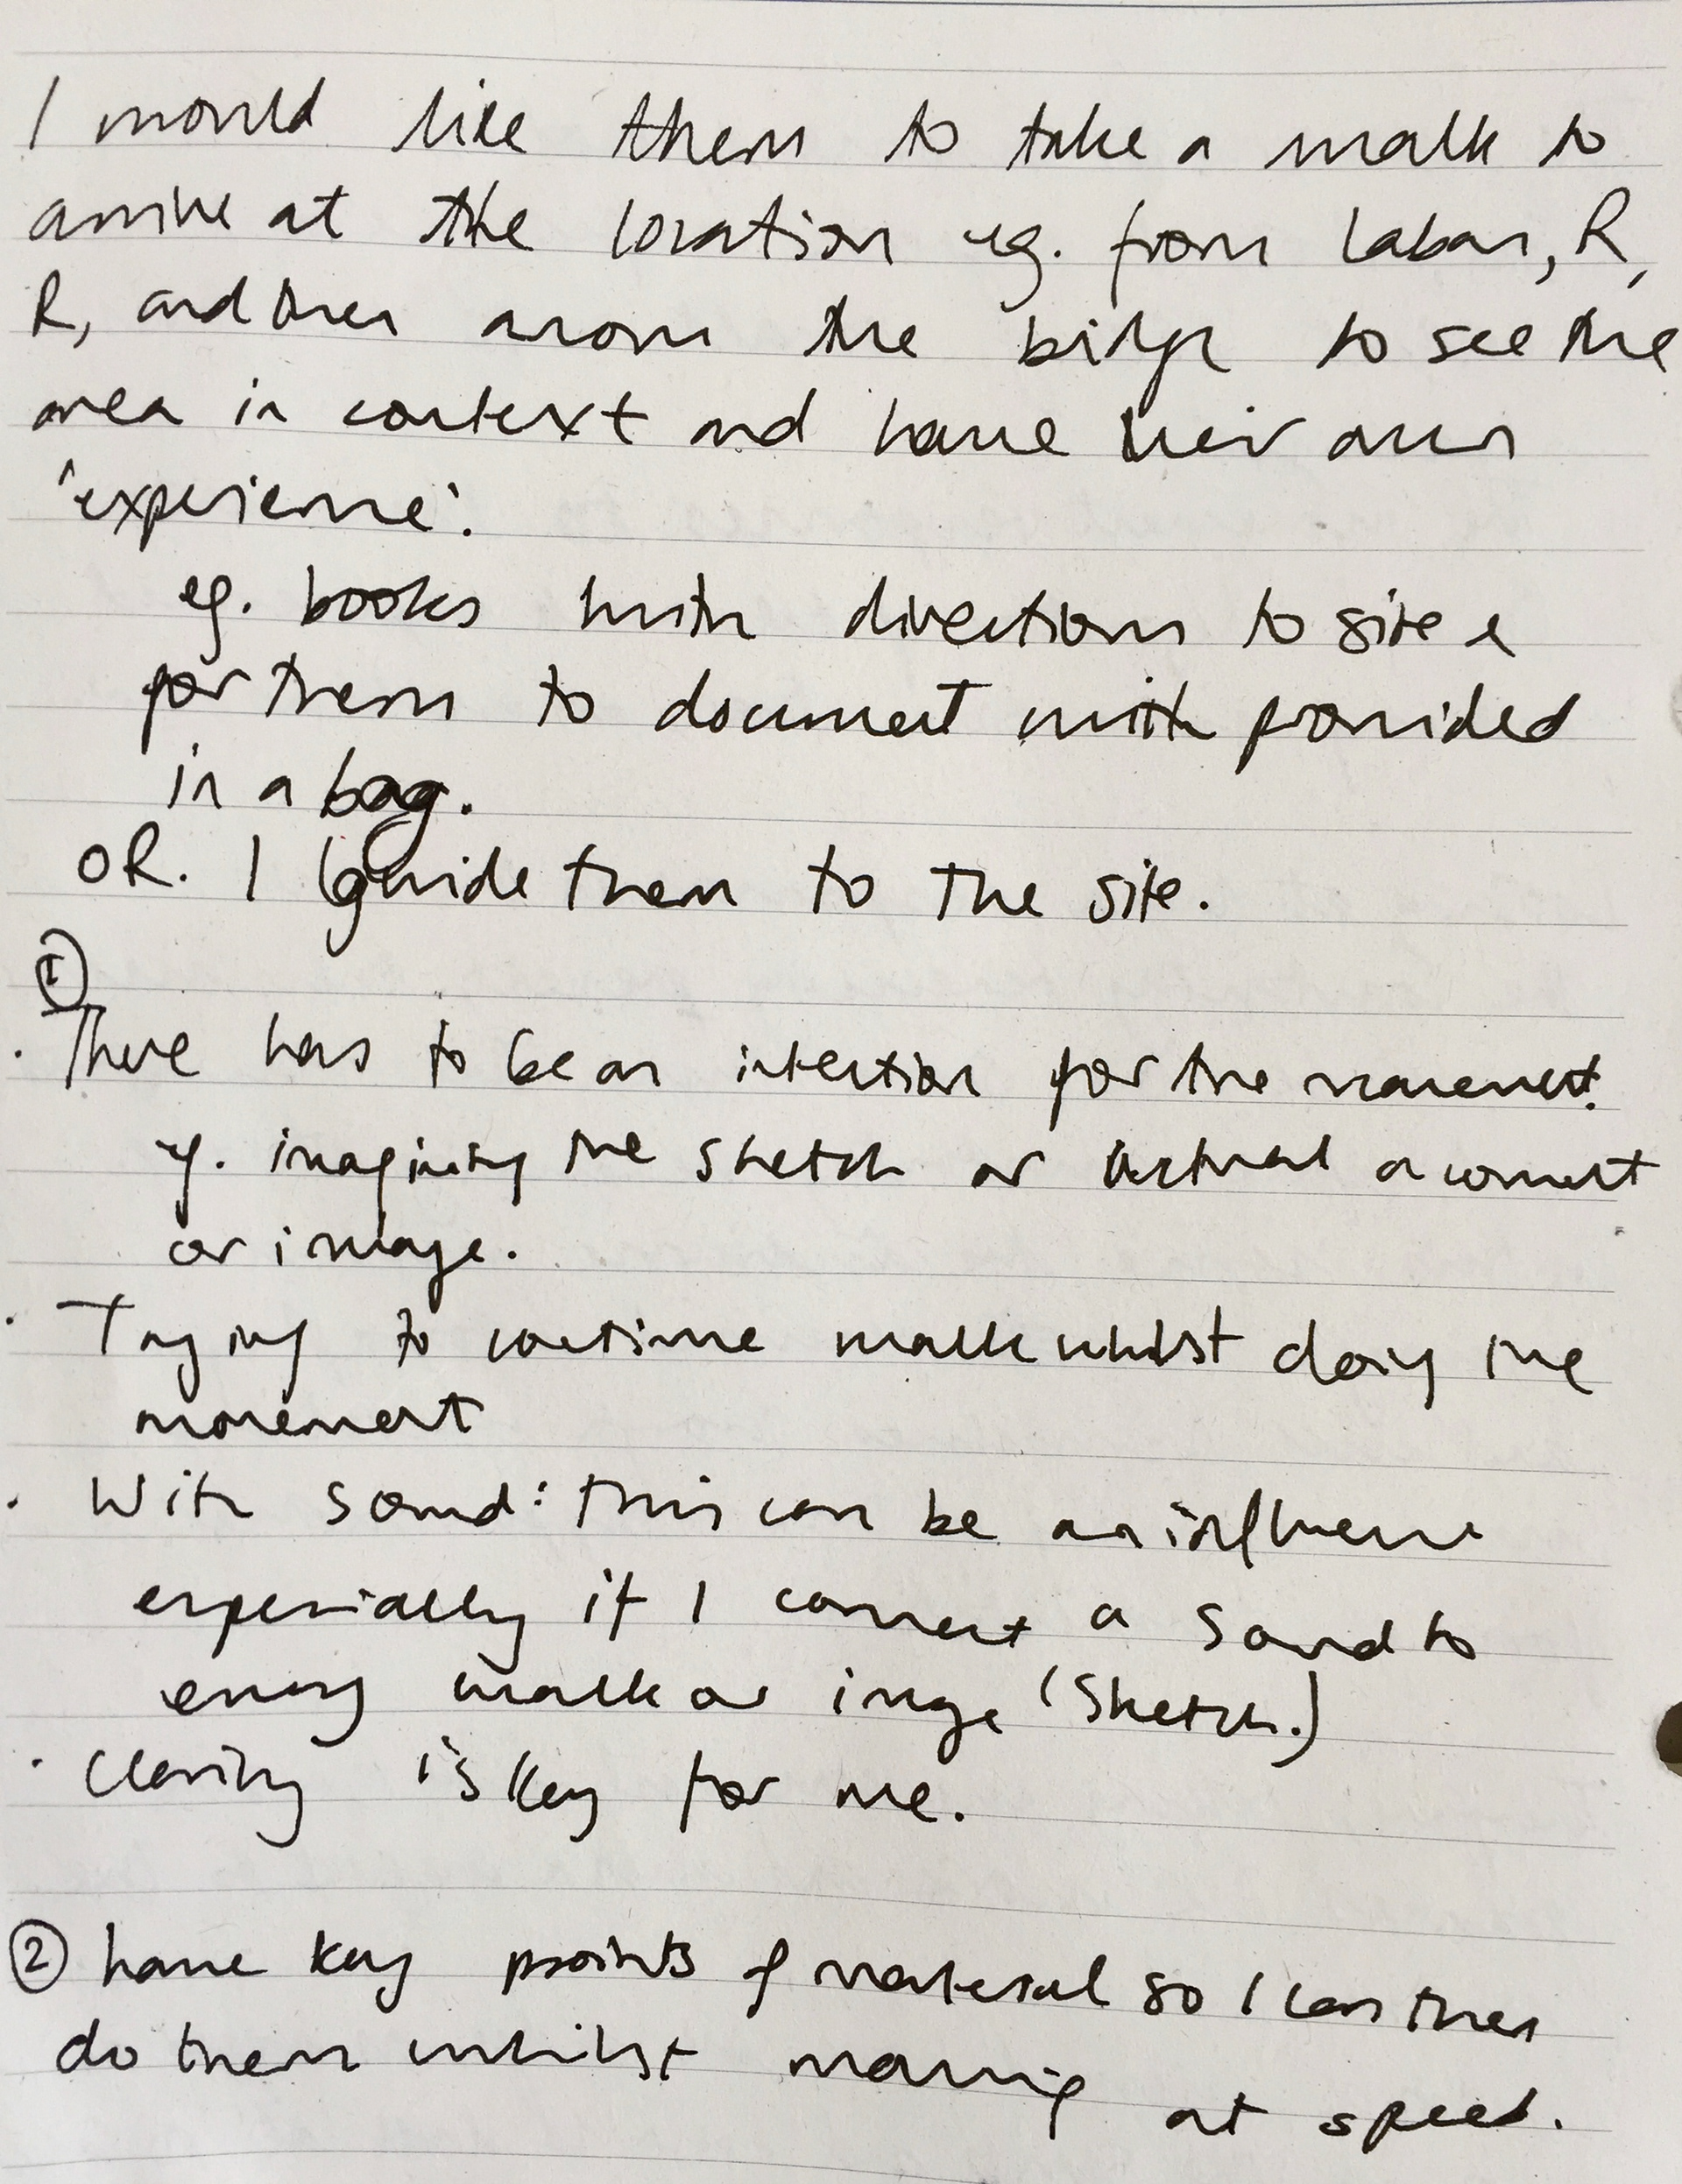 I would like them to take a walk to
arrive at the location eg. from Laban, R,
R, and then across the bridge to see the
area in context and have their own
'experience'.
eg. books with directions to site &
for them to document with provided
in a bag.
OR. I guide them to the site.
①
· There has to be an intention for the movement.
eg. imagining the sketch or actual
or image.
· Trying to continue walk whilst doing the
movement
· With sound: this can be an influence
especially if I connect a sound to
every walk or image (Sketch.)
· Clarity is key for me.
② have key points of material so I can then
do them whilst moving at speed.